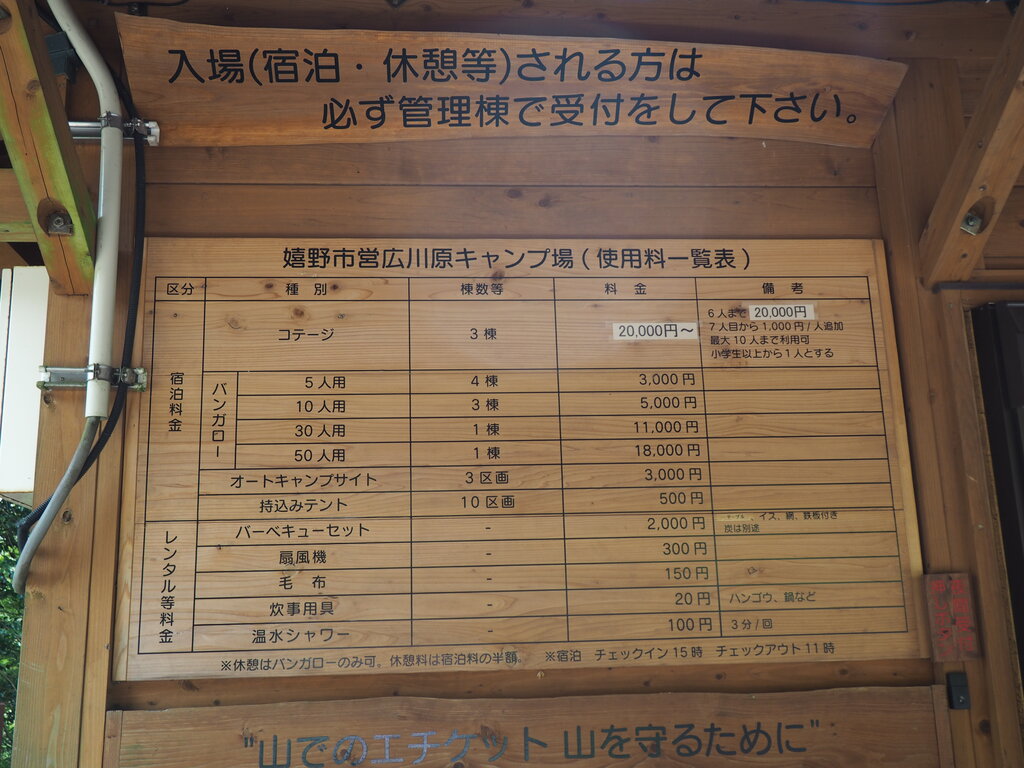 入場(宿泊・休憩等)される方は
必ず管理棟で受付をして下さい。
嬉野市営広川原キャンプ場(使用料一覧表)
区分 種別 棟数等 料金 備考
宿泊料金
コテージ 3棟 20,000円~
6人まで 20,000円
7人目から1,000円/人追加
最大10人まで利用可
小学生以上から1人とする
バンガロー
5人用 4棟 3,000円
10人用 3棟 5,000円
30人用 1棟 11,000円
50人用 1棟 18,000円
オートキャンプサイト 3区画 3,000円
持込みテント 10区画 500円
レンタル等料金
バーベキューセット - 2,000円
、イス、網、鉄板付き
炭は別途
扇風機 - 300円
毛布 - 150円
炊事用具 - 20円 ハンゴウ、鍋など
温水シャワー - 100円 3分/回
※休憩はバンガローのみ可。休憩料は宿泊料の半額。 ※宿泊 チェックイン15時 チェックアウト11時
"山でのエチケット 山を守るために"